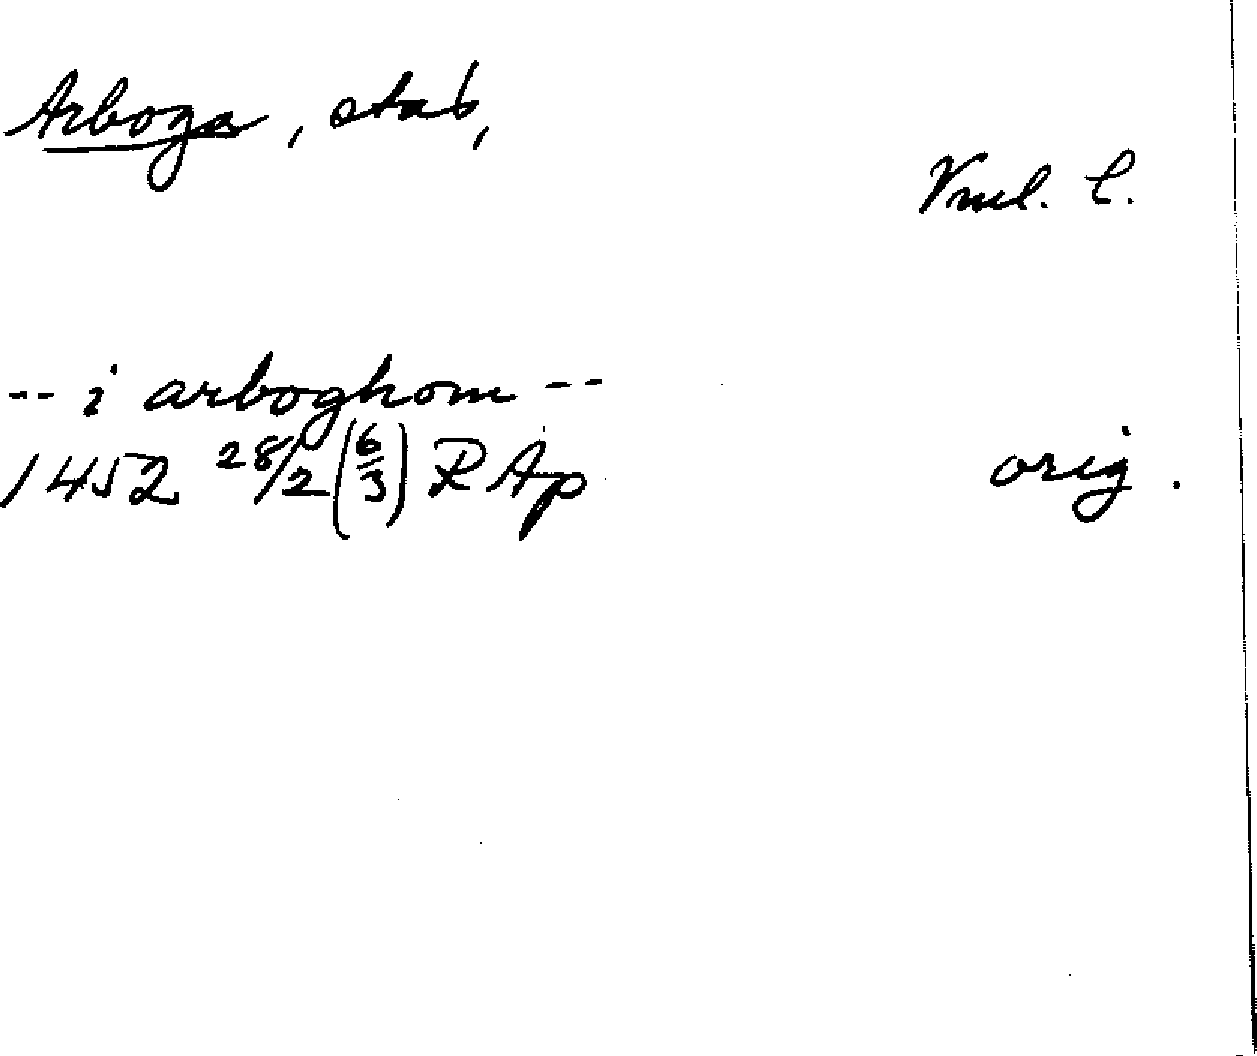 Arboga, stad,
Vml. l.
-- i arboghom --
1452 28/2 (6/3) RAp orig.